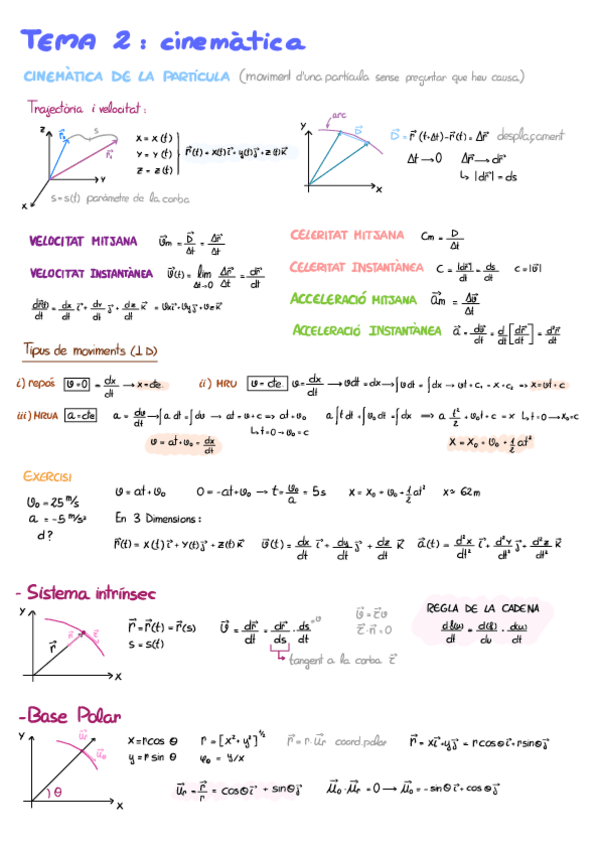 TEMA 2: cinemàtica
CINEMÀTICA DE LA PARTÍCULA (moviment d'una partícula sense preguntar que heu causa)
Trajectòria i velocitat:
z y x r₂ s r₁
x = x(t)
y = y(t)
z = z(t)
r⃗(t) = x(t)i⃗+y(t)j⃗+z(t)k⃗
s=s(t) paràmetre de la corba
y arc D⃗ x
D⃗ = r⃗(t+Δt)-r⃗(t) = Δr⃗ desplaçament
Δt → 0 Δr⃗ → dr⃗
↳ |dr⃗| = ds
VELOCITAT MITJANA v⃗m = D⃗/Δt = Δr⃗/Δt
CELERITAT MITJANA Cm = D/Δt
VELOCITAT INSTANTÀNEA v⃗(t) = lim Δt→0 Δr⃗/Δt = dr⃗/dt
CELERITAT INSTANTÀNEA C = |dr⃗|/dt = ds/dt c=|v⃗|
dr⃗(t)/dt = dx/dt i⃗ + dy/dt j⃗ + dz/dt k⃗ = vxi⃗+vyj⃗+vzk⃗
ACCELERACIÓ MITJANA a⃗m = Δv⃗/Δt
ACCELERACIÓ INSTANTÀNEA a⃗ = dv⃗/dt = d/dt [dr⃗/dt] = d²r⃗/dt²
Tipus de moviments (1D)
i) repós v=0 = dx/dt → x=cte.
ii) MRU v=cte v=dx/dt → vdt=dx → ∫vdt = ∫dx → vt+c₁ = x+c₂ => x=vt+c
iii) MRUA a=cte a = dv/dt → ∫a dt = ∫dv → at = v+c => at+v₀
↳ t=0→v₀=c
v = at+v₀ = dx/dt
a∫t dt + ∫v₀ dt = ∫dx => a t²/2 + v₀t+c = x ↳ t=0→x₀=c
x = x₀ + v₀ + 1/2 at²
EXERCISI
v₀ = 25 m/s
a = -5 m/s²
d?
v = at+v₀ 0 = -at+v₀ → t = v₀/a = 5s x = x₀ + v₀ + 1/2 at² x≈ 62m
En 3 Dimensions:
r⃗(t) = x(t)i⃗+y(t)j⃗+z(t)k⃗ v⃗(t) = dx/dt i⃗ + dy/dt j⃗ + dz/dt k⃗ a⃗(t) = d²x/dt² i⃗ + d²y/dt² j⃗ + d²z/dt² k⃗
- Sistema intrínsec
y r⃗ x
r⃗ = r⃗(t) = r⃗(s)
s = s(t)
v⃗ = dr⃗/dt = dr⃗/ds · ds/dt =v
tangent a la corba τ⃗
v⃗ = τ⃗v
τ⃗·n⃗ = 0
REGLA DE LA CADENA
d f(u)/dt = d(f)/du · d(u)/dt
- Base Polar
y u⃗r u⃗θ θ x
x=r cos θ
y=r sin θ
r = [x²+y²]^1/2
φ₀ = y/x
r⃗ = r·u⃗r coord. polar
r⃗ = xi⃗+yj⃗ = rcosθi⃗+rsinθj⃗
u⃗r = r⃗/r = cosθi⃗ + sinθj⃗
u⃗θ · u⃗r = 0 → u⃗θ = -sinθi⃗+cosθj⃗